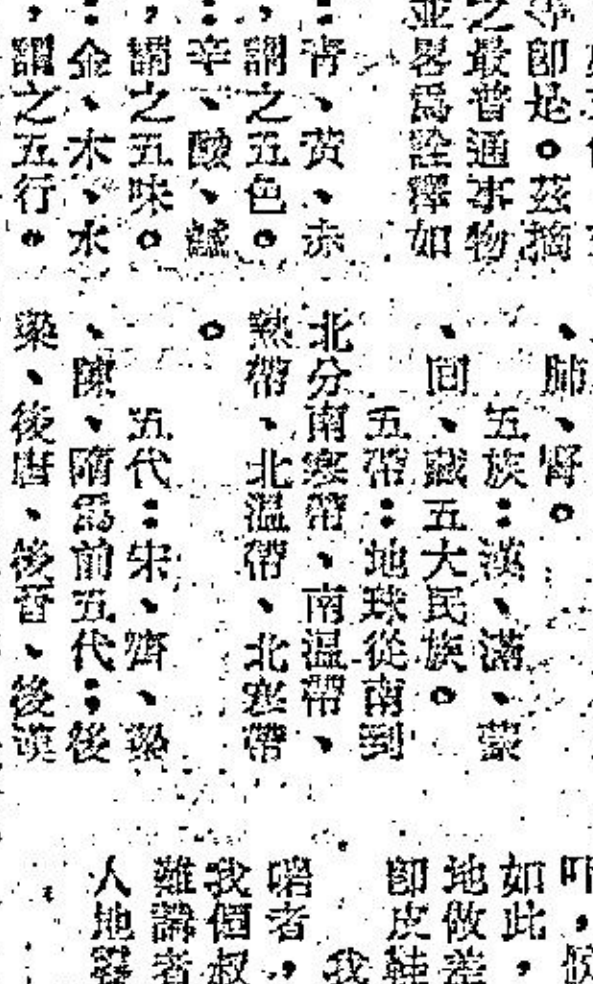 等卽是。茲摘
之最普通事物
並畧爲詮釋如
：靑、黃、赤
，謂之五色。
：辛、酸、鹹
，謂之五味。
：金、木、水
，謂之五行。
、肺、腎。
五族：漢、滿、蒙
、回、藏五大民族。
五帶：地球從南到
北分南寒帶、南溫帶、
熱帶、北溫帶、北寒帶
。
五代：宋、齊、梁
、陳、隋爲前五代；後
梁、後唐、後晋、後漢
如此，
地做差
卽皮鞋
我
啱者，
我個叔
難講者
人地